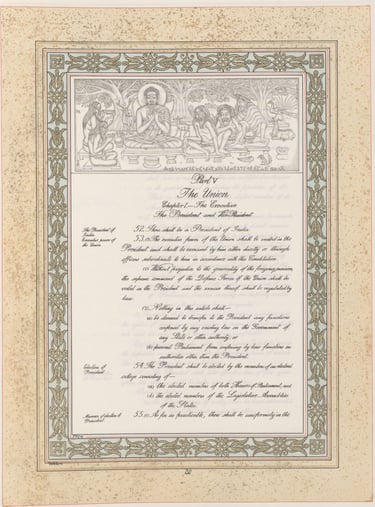 Part V
The Union
Chapter I.—The Executive
The President and Vice-President
The President of
India
52. There shall be a President of India.
Executive power of
the Union
53. (1) The executive power of the Union shall be vested in the
President and shall be exercised by him either directly or through
officers subordinate to him in accordance with this Constitution.
(2) Without prejudice to the generality of the foregoing provision,
the supreme command of the Defence Forces of the Union shall be
vested in the President and the exercise thereof shall be regulated by
law.
(3) Nothing in this article shall—
(a) be deemed to transfer to the President any functions
conferred by any existing law on the Government of
any State or other authority; or
(b) prevent Parliament from conferring by law functions on
authorities other than the President.
Election of
President
54. The President shall be elected by the members of an electoral
college consisting of—
(a) the elected members of both Houses of Parliament; and
(b) the elected members of the Legislative Assemblies
of the States.
Manner of election of
President
55. (1) As far as practicable, there shall be uniformity in the
20